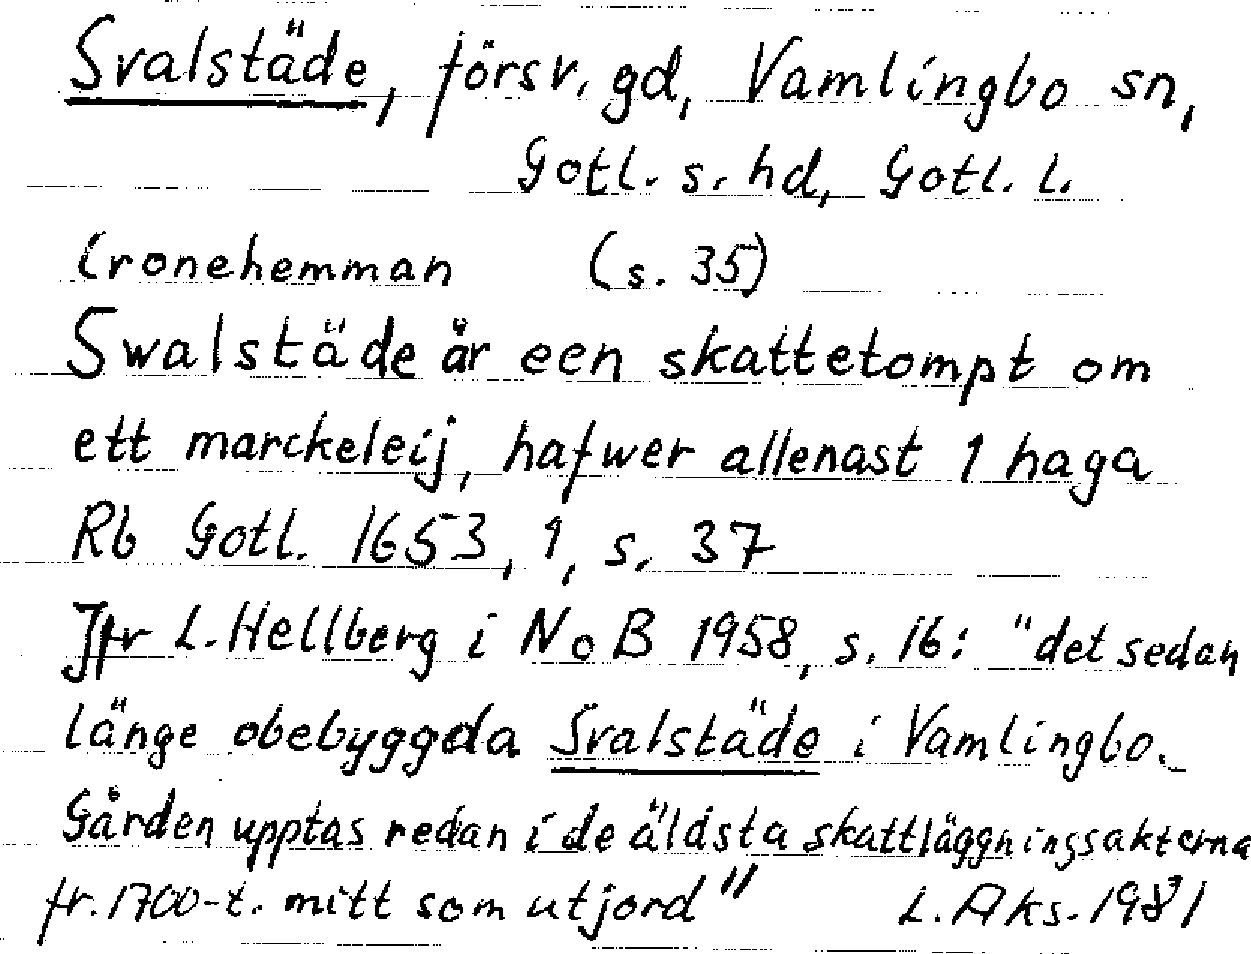 Svalstäde, försv. gd, Vamlingbo sn,
Gotl. s. hd, Gotl. l.
Cronehemman (s. 35)
Swalstäde år een skattetompt om
ett marckeleij, hafwer allenast 1 haga
Rb Gotl. 1653, 1, s. 37
Jfr L. Hellberg i NoB 1958, s. 16: "det sedan
länge obebyggda Svalstäde i Vamlingbo.
Gården upptas redan i de äldsta skattläggningsakterna
fr. 1700-t. mitt som utjord" L. Aks. 1981